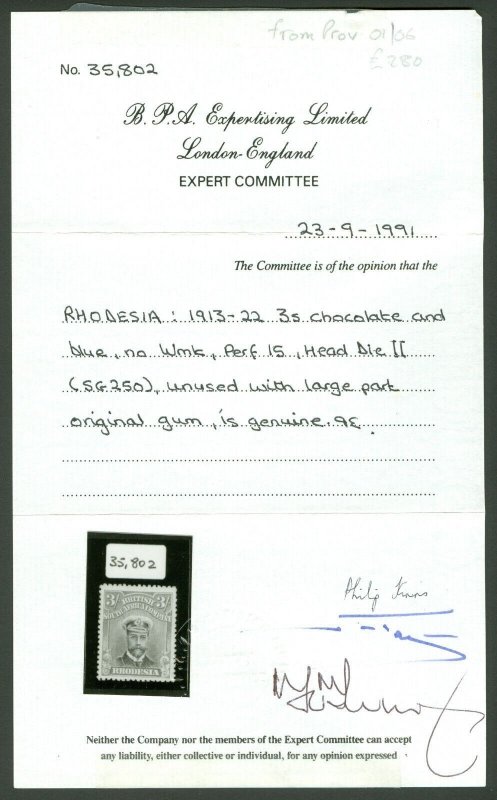 from Prov 01/06
£280
No. 35,802
B.P.A. Expertising Limited
London-England
EXPERT COMMITTEE
23-9-1991
The Committee is of the opinion that the
RHODESIA: 1913-22 3s chocolate and
blue, no Wmk, Perf 15, Head Die II
(SG250), unused with large part
original gum, is genuine.
35,802
3/- 3/-
BRITISH
SOUTH AFRICA COMPANY
RHODESIA
Philip
Neither the Company nor the members of the Expert Committee can accept
any liability, either collective or individual, for any opinion expressed